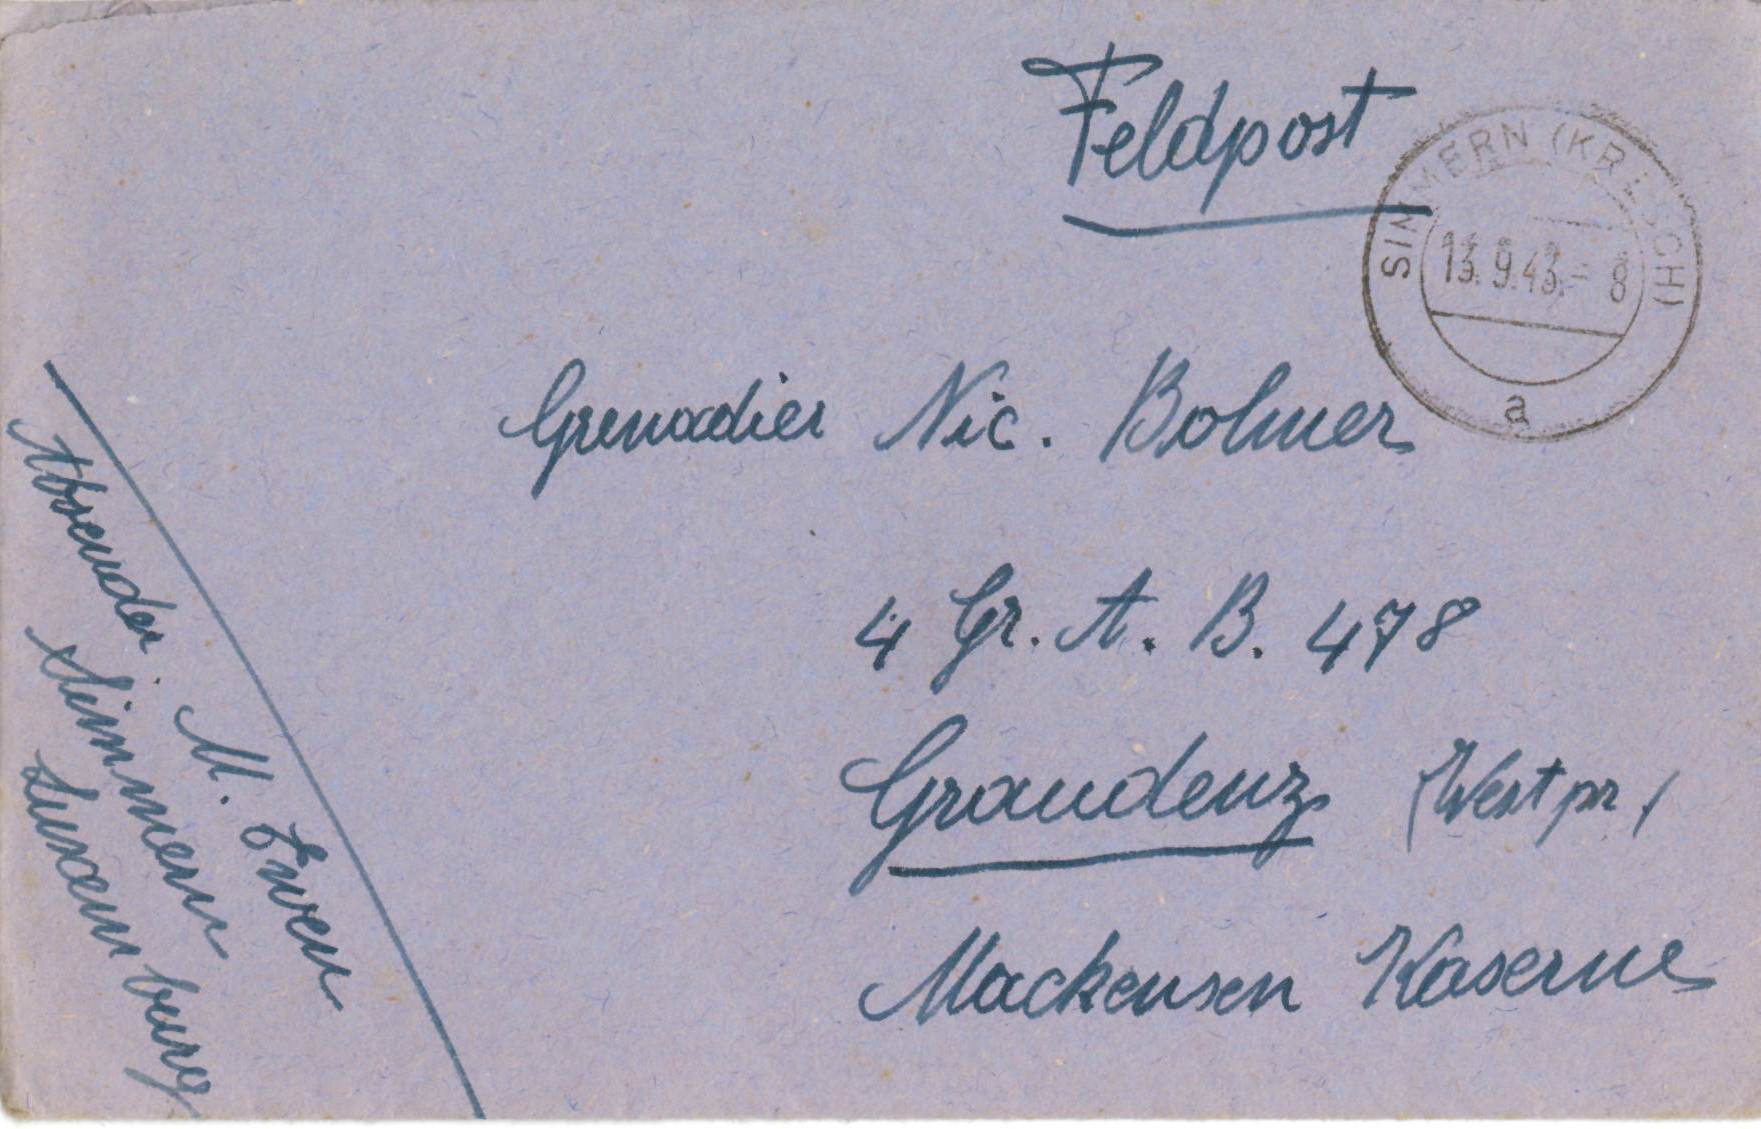 Feldpost
SIMMERN (KR. ESCH)
13.9.43.- 8
a
Grenadier Nic. Bohmer
4 Gr. A. B. 478
Graudenz (Westpr)
Mackensen Kaserne
Absender. M. Ewen
Simmern
Luxemburg